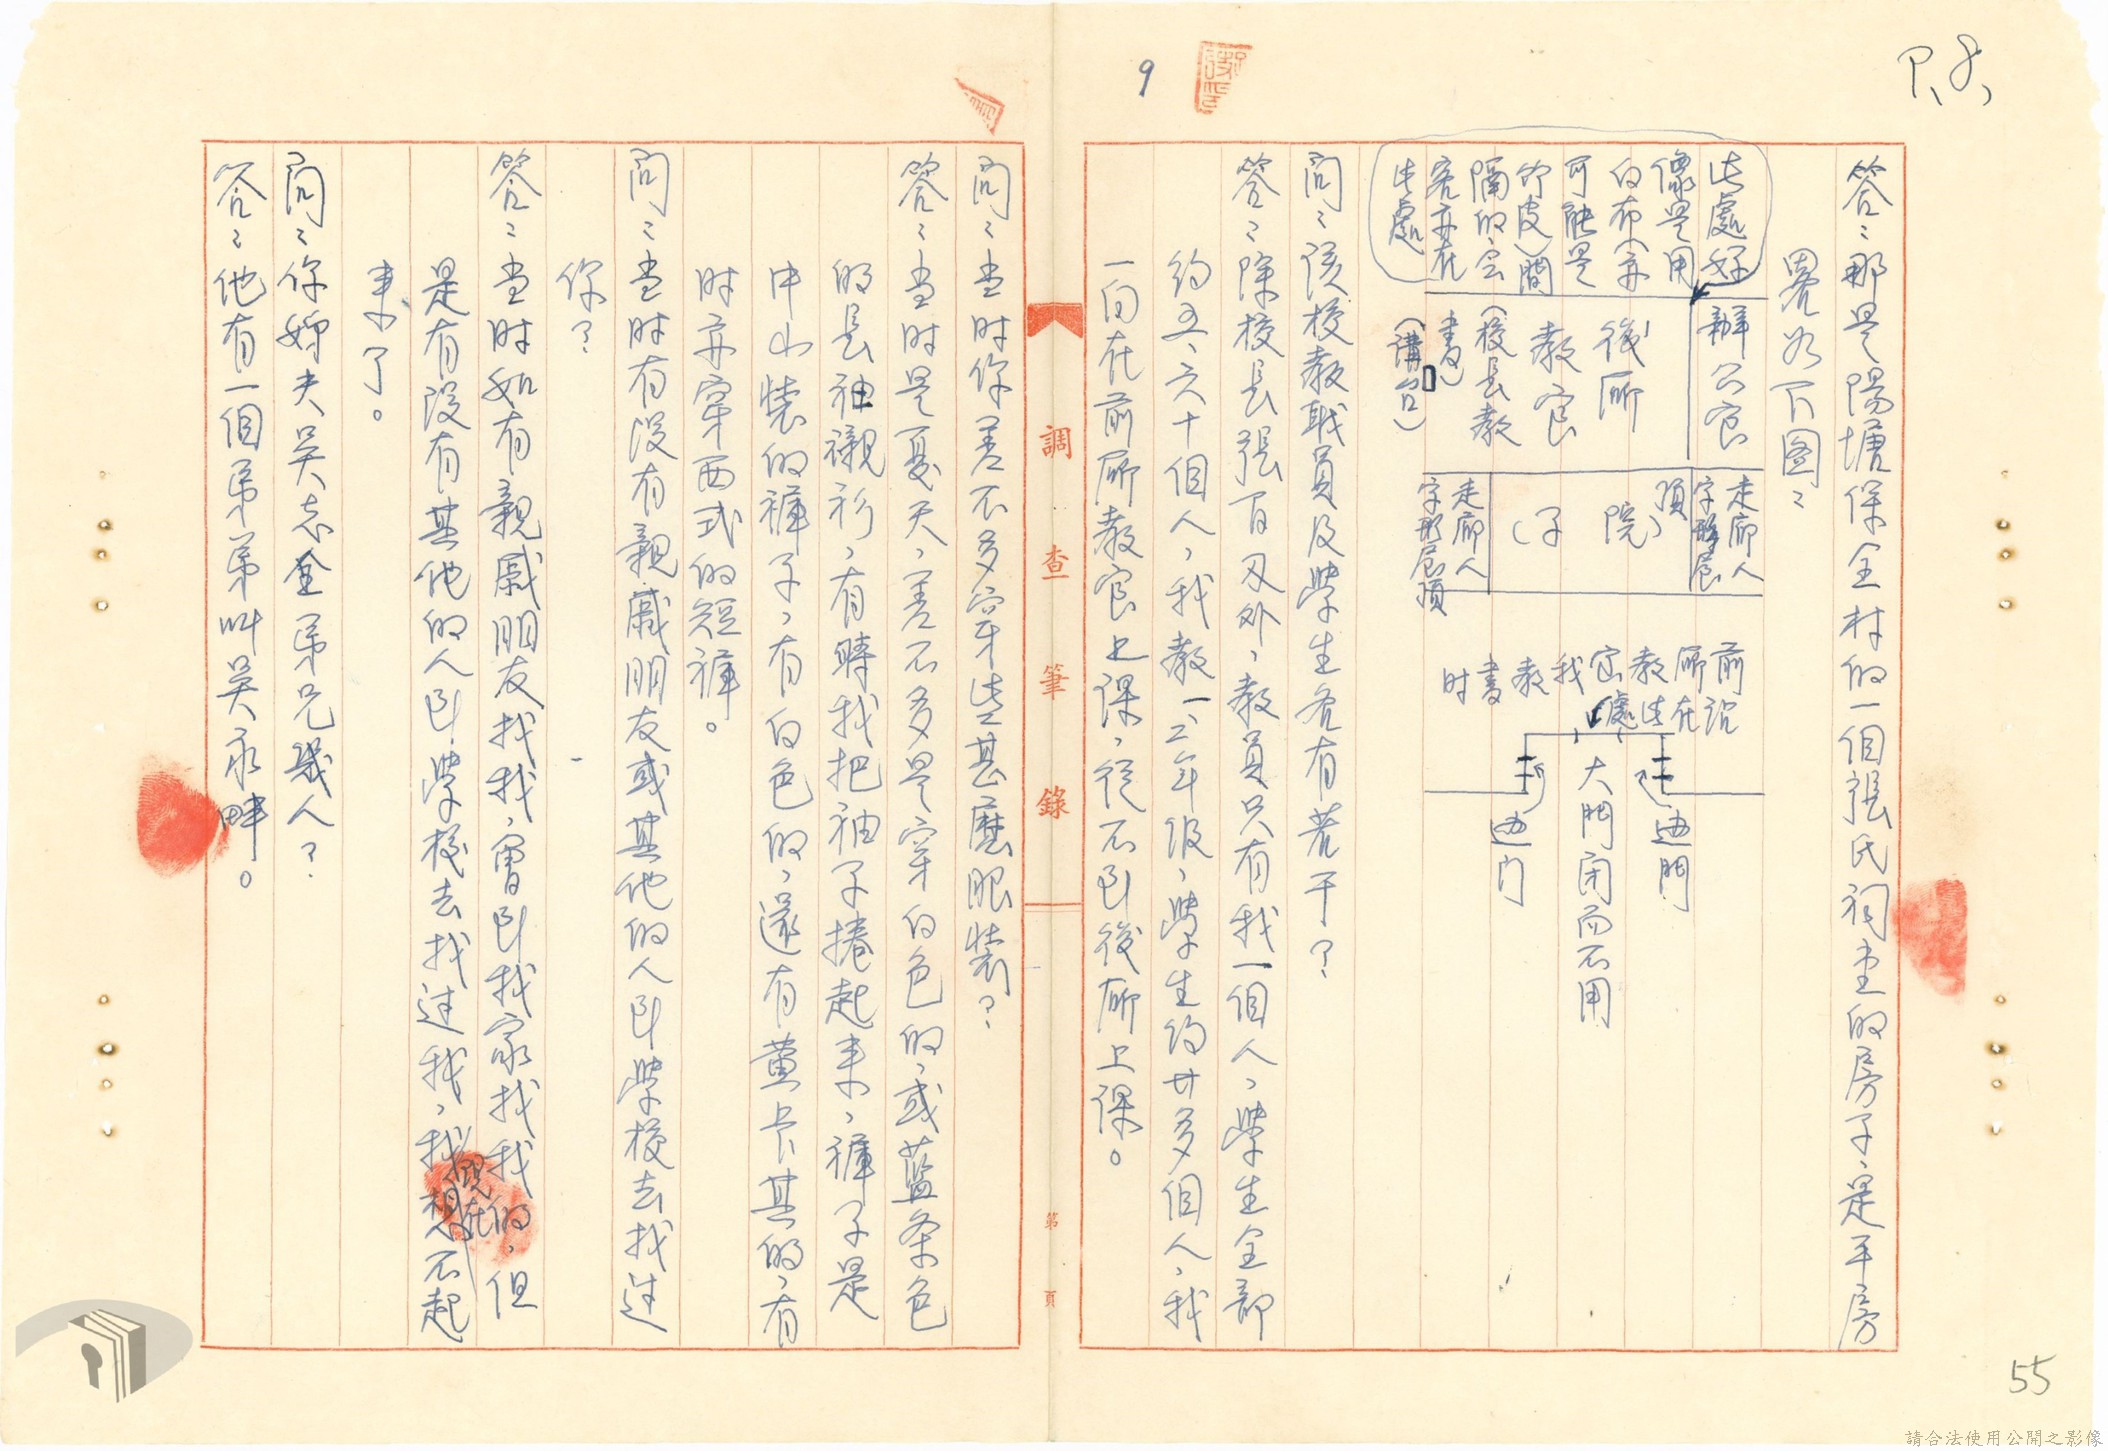 P.8.
9
答：那是陽塘保全村的一個張氏祠堂的房子，是平房
畧如下图：
此處好
像是用
白布（亦
可能是
竹皮）間
隔的会
客亦在
此處
辦公室
後廊
教室
（校長教
書）
（講台）
走廊人
字形屋
頂
（院子）
走廊人
字形屋頂
前廊教室我教書时
說在此處
大門闭而不用
边門
边门
問：該校教职員及學生各有若干？
答：除校長張百忍外，教員只有我一個人，學生全部
約五、六十個人，我教一二年级，學生约廿多個人，我
一向在前廊教室上課，從不到後廊上課。
調查筆錄
第 頁
問：当时你差不多穿些甚麽服裝？
答：当时是夏天，差不多是穿白色的，或藍条色
的長袖襯衫，有時我把袖子捲起来，褲子是
中山裝的褲子，有白色的，還有黄卡其的，有
时亦穿西式的短褲。
問：当时有没有親戚朋友或其他的人到學校去找过
你？
答：当时如有親戚朋友找我，會到我家找我的，但
是有没有其他的人到學校去找过我，我現在想不起
来了。
問：你姊夫吴志金弟兄幾人？
答：他有一個弟弟叫吴永畔。
55
請合法使用公開之影像